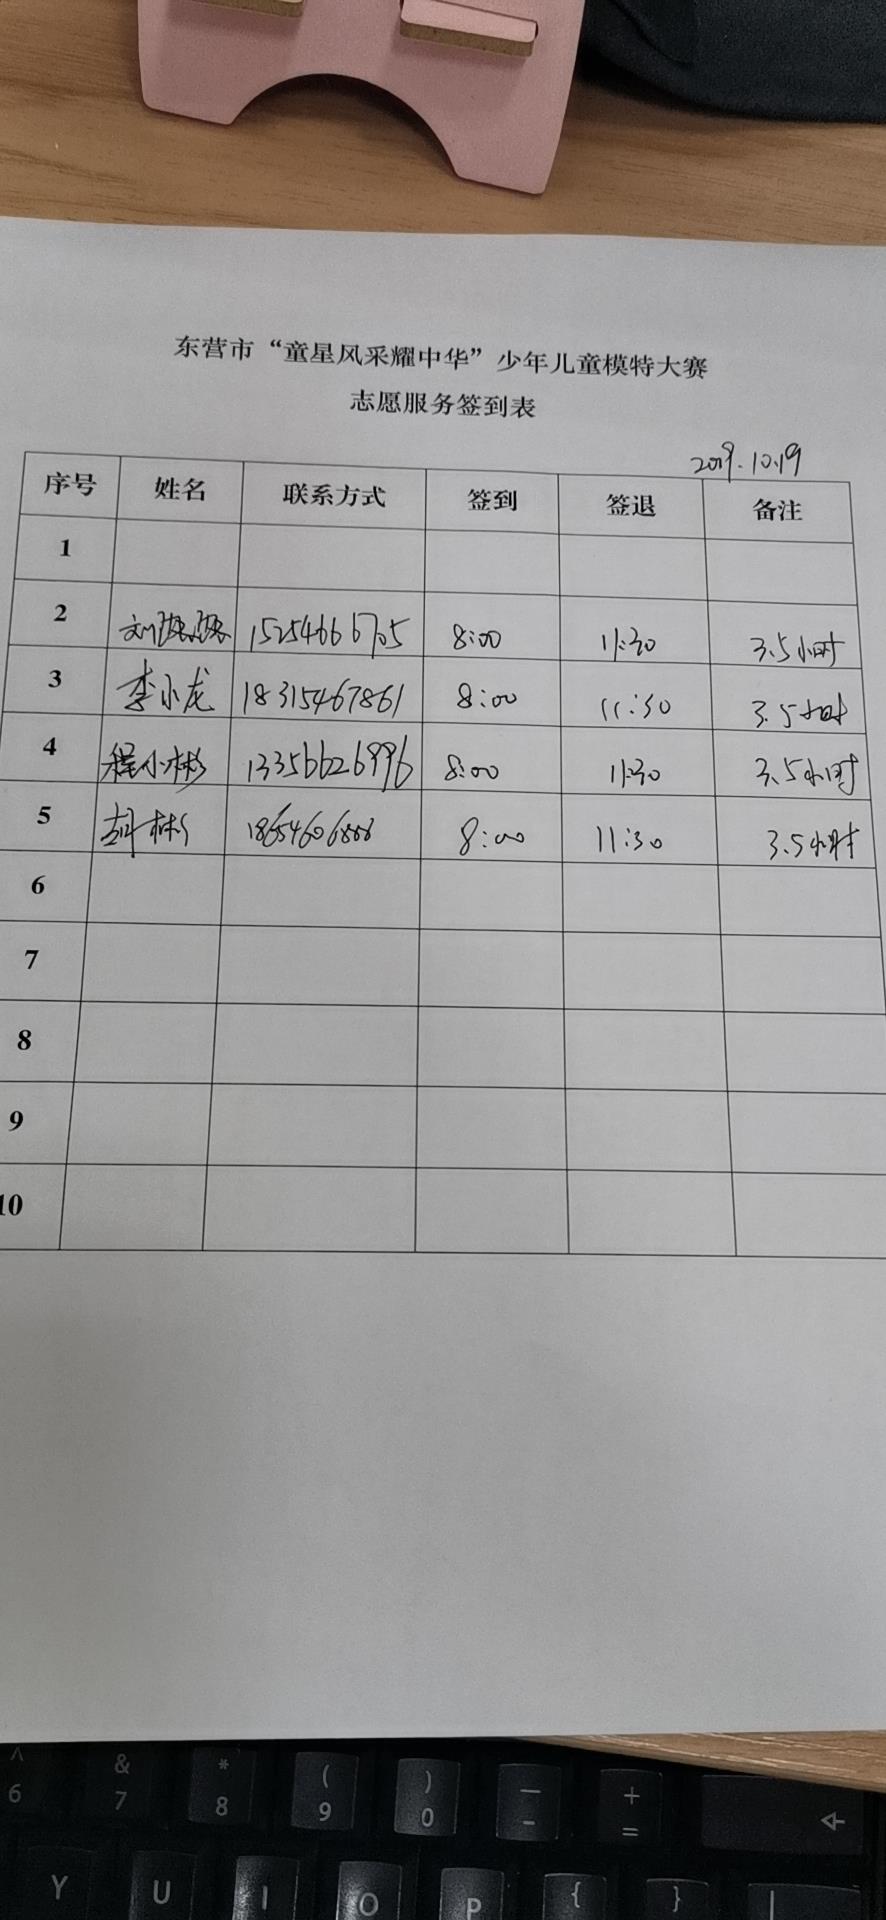 东营市“童星风采耀中华”少年儿童模特大赛
志愿服务签到表
2019.10.19
序号 姓名 联系方式 签到 签退 备注
1
2 15254666705 8:00 11:30 3.5小时
3 李小龙 18315467861 8:00 11:30 3.5小时
4 程小彬 13356626996 8:00 11:30 3.5小时
5 胡彬 8:00 11:30 3.5小时
6
7
8
9
10
^ & * ( ) — +
6 7 8 9 0 - =
Y U I O P { } |